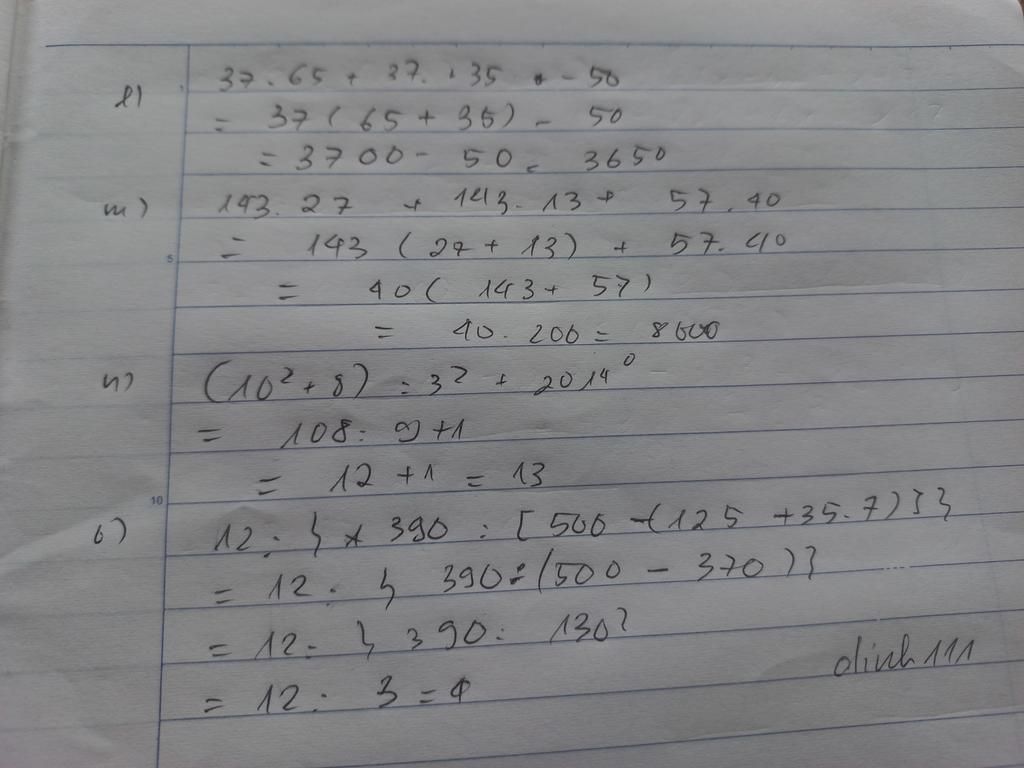 l) 37.65 + 37.35 - 50
= 37(65 + 35) - 50
= 3700 - 50 = 3650
m) 143.27 + 143.13 + 57.40
= 143 (27 + 13) + 57.40
= 40( 143 + 57)
= 40.200 = 8000
n) (10² + 8) : 3² + 2014⁰
= 108 : 9 + 1
= 12 + 1 = 13
o) 12 : { 390 : [ 500 - (125 + 35.7) ] }
= 12 : { 390 : (500 - 370) }
= 12 : { 390 : 130 }
= 12 : 3 = 4
dinh111
5
10